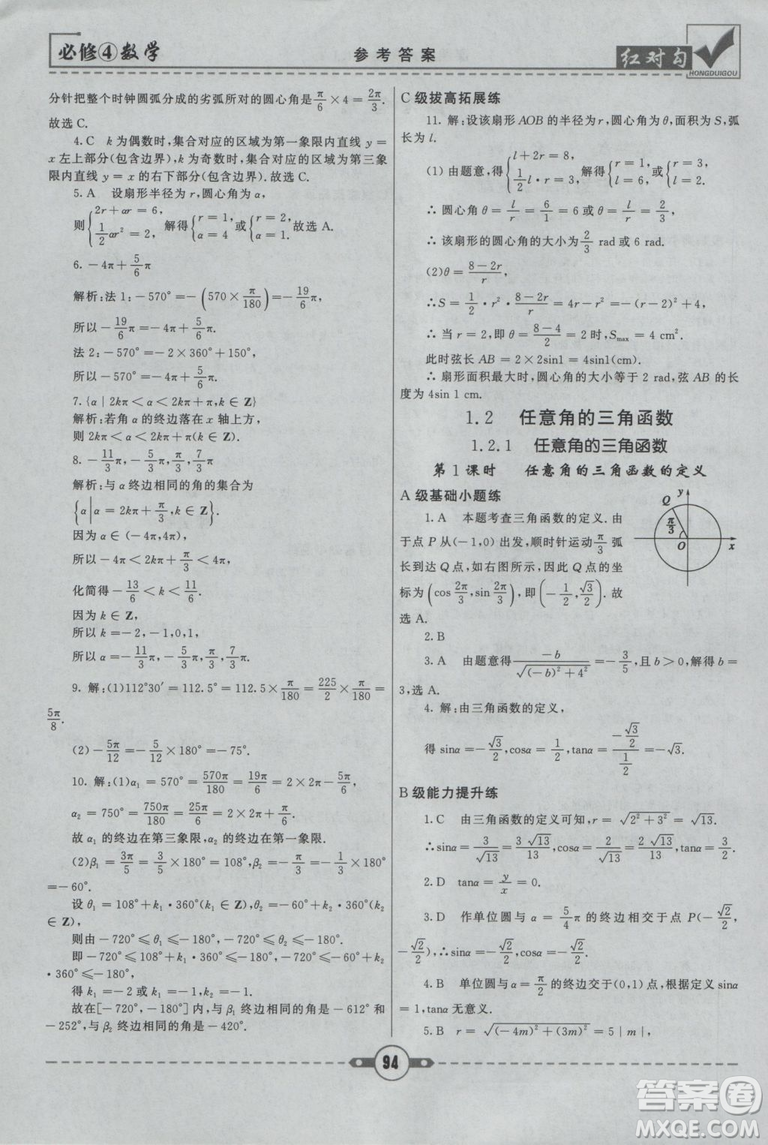 必修④数学
参考答案
红对勾
HONGDUIGOU
分针把整个时钟圆弧分成的劣弧所对的圆心角是π/6×4=2π/3.
故选C.
4.C k为偶数时,集合对应的区域为第一象限内直线y=
x左上部分(包含边界),k为奇数时,集合对应的区域为第三象
限内直线y=x的右下部分(包含边界).故选C.
5.A 设扇形半径为r,圆心角为α,
则{2r+αr=6, 1/2αr²=2, 解得{r=1, α=4 或{r=2, α=1. 故选A.
6.-4π+5/6π
解析:法1:-570°=-(570×π/180)=-19/6π,
所以-19/6π=-4π+5/6π.
法2:-570°=-2×360°+150°,
所以-570°=-4π+5/6π.
7.{α|2kπ<α<2kπ+π,k∈Z}
解析:若角α的终边落在x轴上方,
则2kπ<α<2kπ+π(k∈Z).
8.-11/3π,-5/3π,π/3,7/3π
解析:与α终边相同的角的集合为
{α|α=2kπ+π/3,k∈Z}.
因为α∈(-4π,4π),
所以-4π<2kπ+π/3<4π,
化简得-13/6<k<11/6.
因为k∈Z,
所以k=-2,-1,0,1,
所以α=-11/3π,-5/3π,π/3,7/3π.
9.解:(1)112°30′=112.5°=112.5×π/180=225/2×π/180=
5π/8.
(2)-5π/12=-5/12×180°=-75°.
10.解:(1)α₁=570°=570π/180=19π/6,
α₂=750°=750π/180=25π/6=2×2π+π/6.
故α₁的终边在第三象限,α₂的终边在第一象限.
(2)β₁=3π/5=3/5×180°=108°,β₂=-π/3=-1/3×180°=
-60°.
设θ₁=108°+k₁·360°(k₁∈Z),θ₂=-60°+k₂·360°
(k₂∈Z).
则由-720°≤θ₁≤-180°,-720°≤θ₂≤-180°,
即-720°≤108°+k₁·360°≤-180°,-720°≤-60°+k₂
·360°≤-180°,
得k₁=-2或k₁=-1,k₂=-1.
故在[-720°,-180°]内与β₁终边相同的角是-612°和
-252°,与β₂终边相同的角是-420°.
C级拔高拓展练
11.解:设该扇形AOB的半径为r,圆心角为θ,面积为S,弧
长为l.
(1)由题意,得{l+2r=8, 1/2l·r=3, 解得{r=1, l=6 或{r=3, l=2.
∴圆心角θ=l/r=6/1=6或θ=l/r=2/3,
∴该扇形的圆心角的大小为2/3 rad或6 rad.
(2)θ=(8-2r)/r,
∴S=1/2·r²·(8-2r)/r=4r-r²=-(r-2)²+4,
∴当r=2,即θ=(8-4)/2=2时,Smax=4 cm².
此时弦长AB=2×2sin1=4sin1(cm).
∴扇形面积最大时,圆心角的大小等于2 rad,弦AB的长
度为4sin 1 cm.
1.2 任意角的三角函数
1.2.1 任意角的三角函数
第1课时 任意角的三角函数的定义
A级基础小题练
1.A 本题考查三角函数的定义.由
于点P从(-1,0)出发,顺时针运动π/3弧
长到达Q点,如右图所示,因此Q点的坐
标为(cos2π/3,sin2π/3),即(-1/2,√3/2).故
选A.
Q
y
π/3
O
x
2.B
3.A 由题意得-b/√((-b)²+4²)=-3/5,且b>0,解得b=
3,选A.
4.解:由三角函数的定义,
得sinα=-√3/2,cosα=1/2,tanα=(-√3/2)/(1/2)=-√3.
B级能力提升练
1.C 由三角函数的定义可知,r=√(2²+3²)=√13.
∴sinα=3/√13=3√13/13,cosα=2/√13=2√13/13.
2.D tanα=y/x=0.
3.D 作单位圆与α=5/4π的终边相交于点P(-√2/2,
-√2/2),∴sinα=-√2/2,cosα=-√2/2,tanα=1.
4.B 单位圆与α=π/2的终边交于(0,1)点,根据定义sinα
=1,tanα无意义.
5.B r=√((-4m)²+(3m)²)=5|m|,
94
答案圈
MXQE.COM